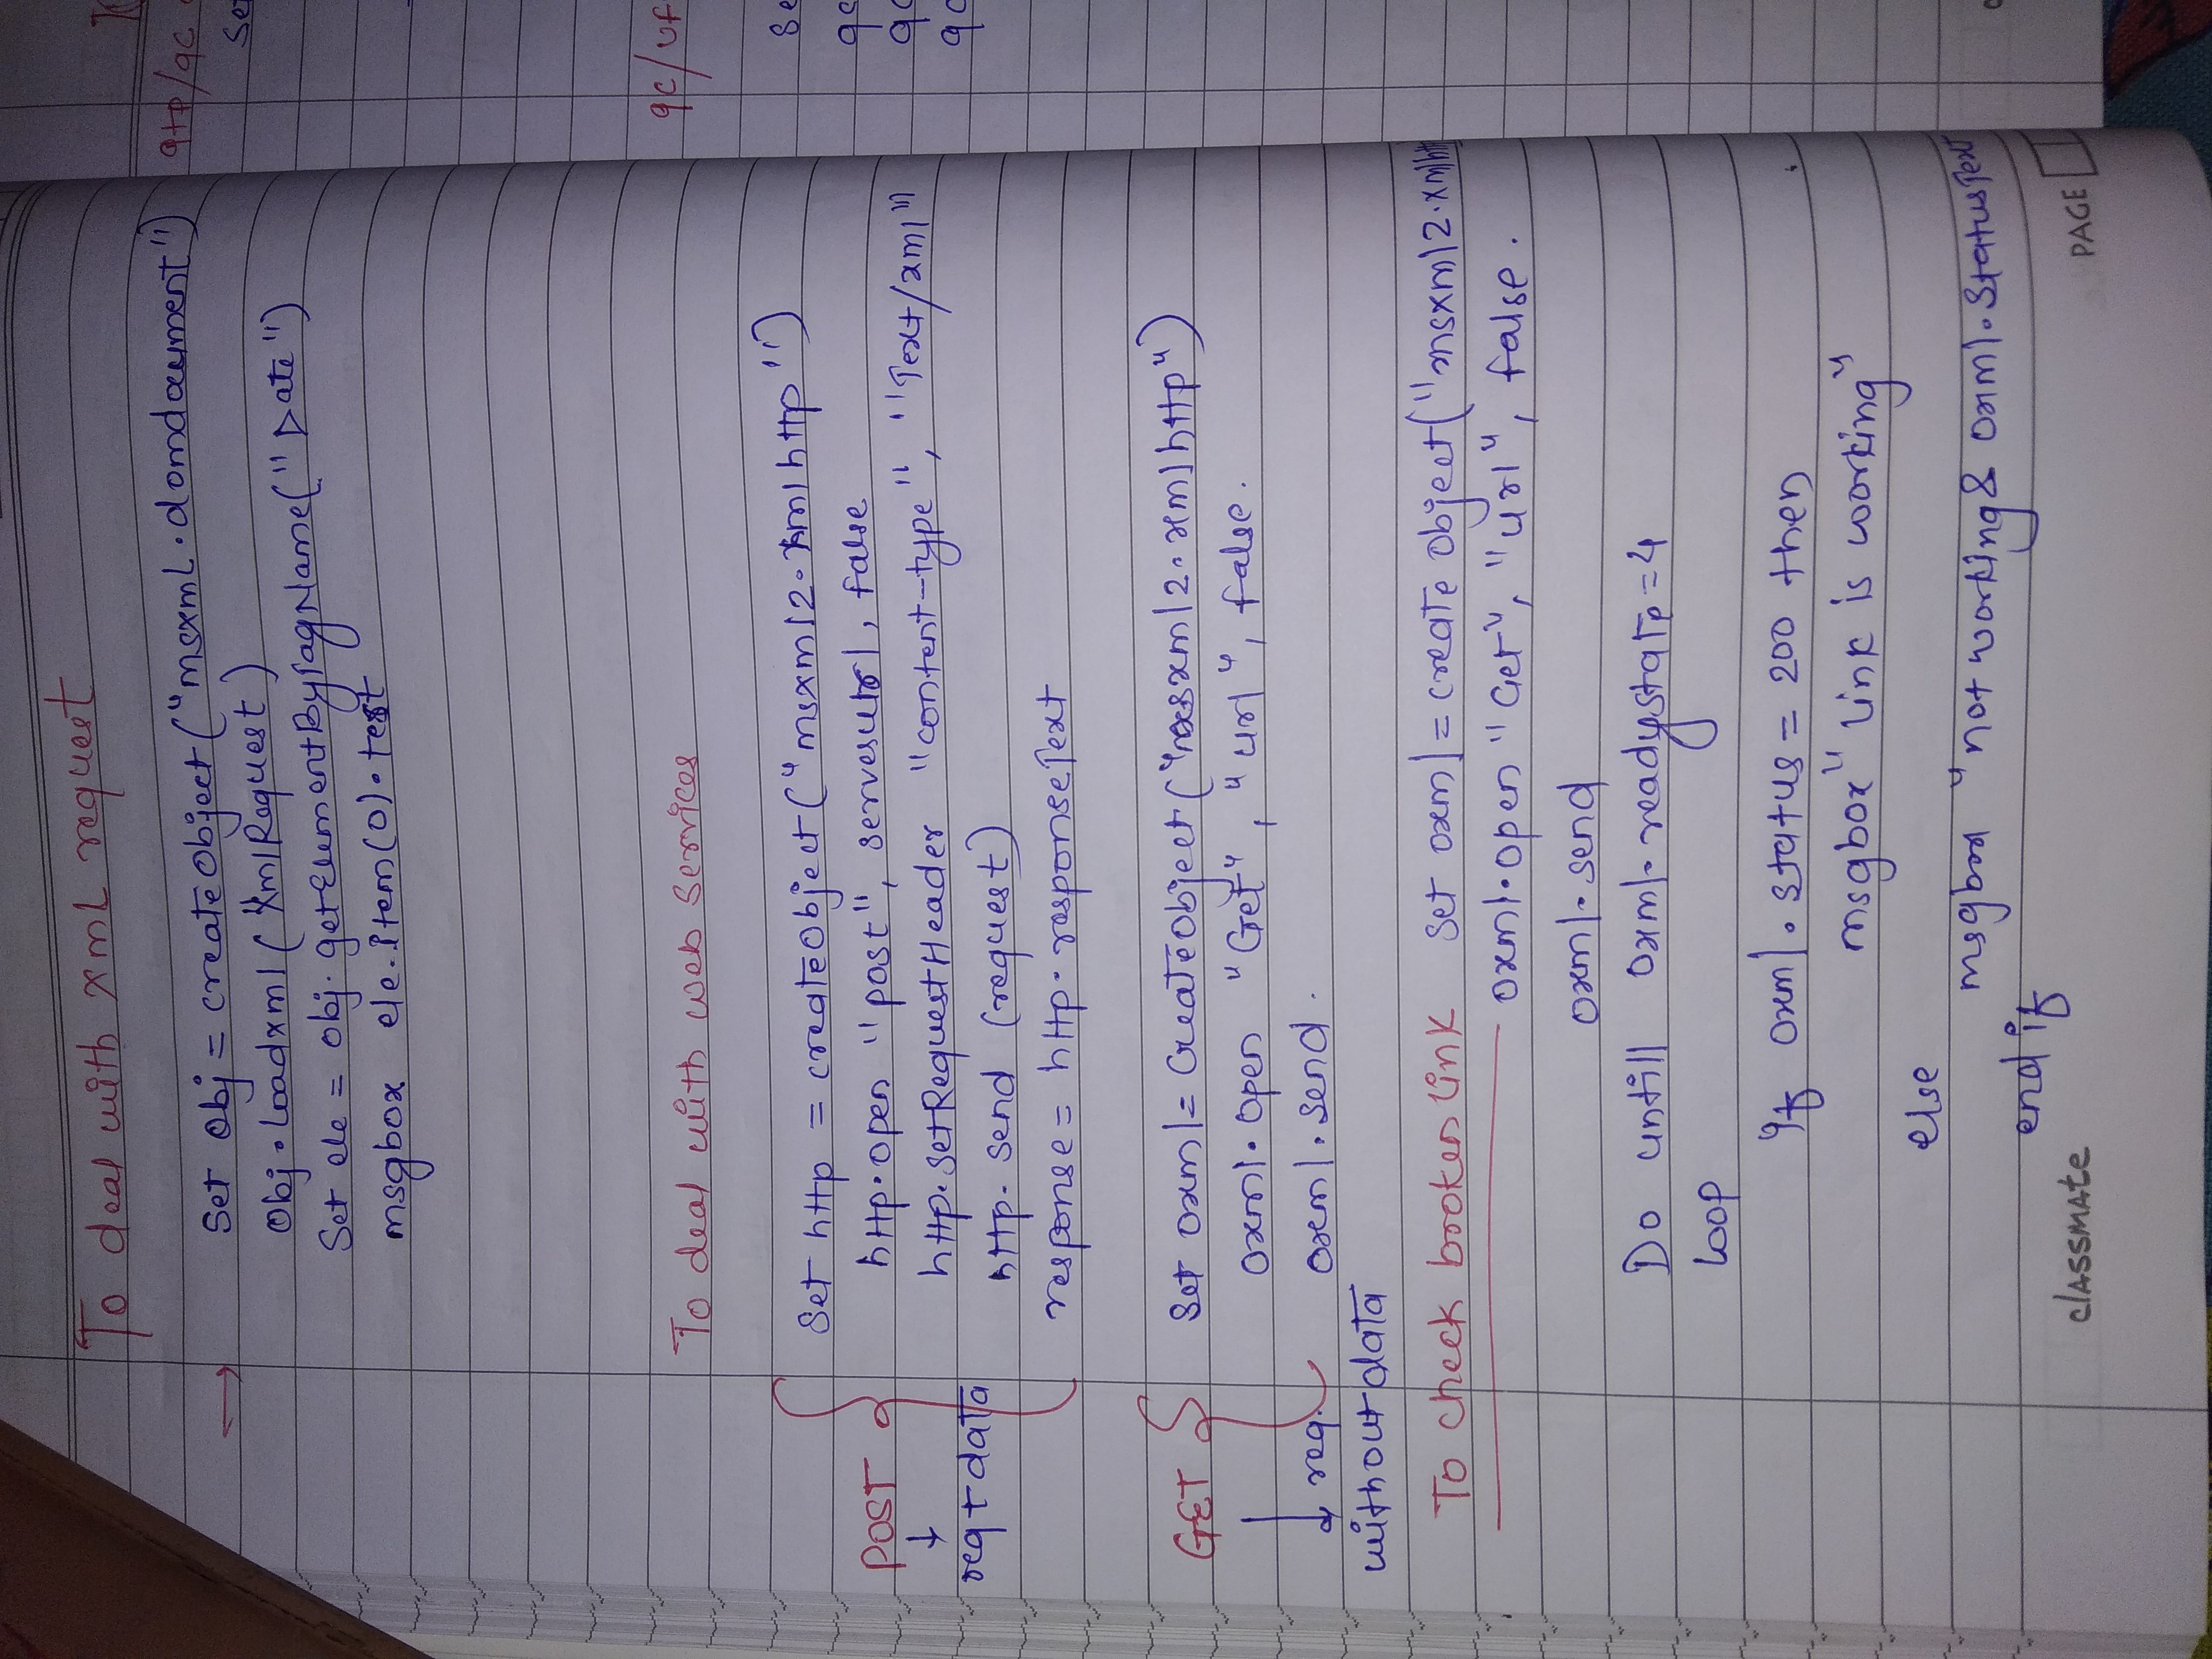 To deal with xmL request
→ Set Obj = createObject("msxmL.domdocument")
Obj.loadxml (XmlRequest)
Set ele = obj.getElementByTagName("Date")
msgbox ele.Item(0).text
To deal with web services
Set http = createObject("msxml2.xmlhttp")
POST http.open "post", serverurl, false
↓ http.setRequestHeader "content-type", "Text/xml"
req + data http.send (request)
response = http.responseText
Set oxml = CreateObject("msxml2.xmlhttp")
GET oxml.open "Get", "url", false.
↓ req. oxml.send.
without data
To check broken link Set oxml = create object("msxml2.xmlhttp
oxml.open "Get", "url", false.
oxml.send
Do untill oxml.readystate=4
Loop
If oxml.status = 200 then
msgbox "link is working"
else
msgbox "not working & oxml.StatusText
end if
classmate
PAGE
qtp/qc
Se
qc/uf
Se
qc
qc
qc